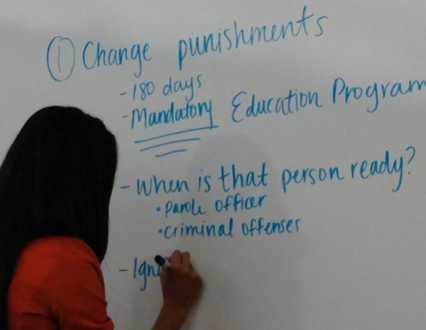 ① Change punishments
- 180 days
- Mandatory Education Program
- When is that person ready?
• Parole officer
• criminal offenses
- Ign